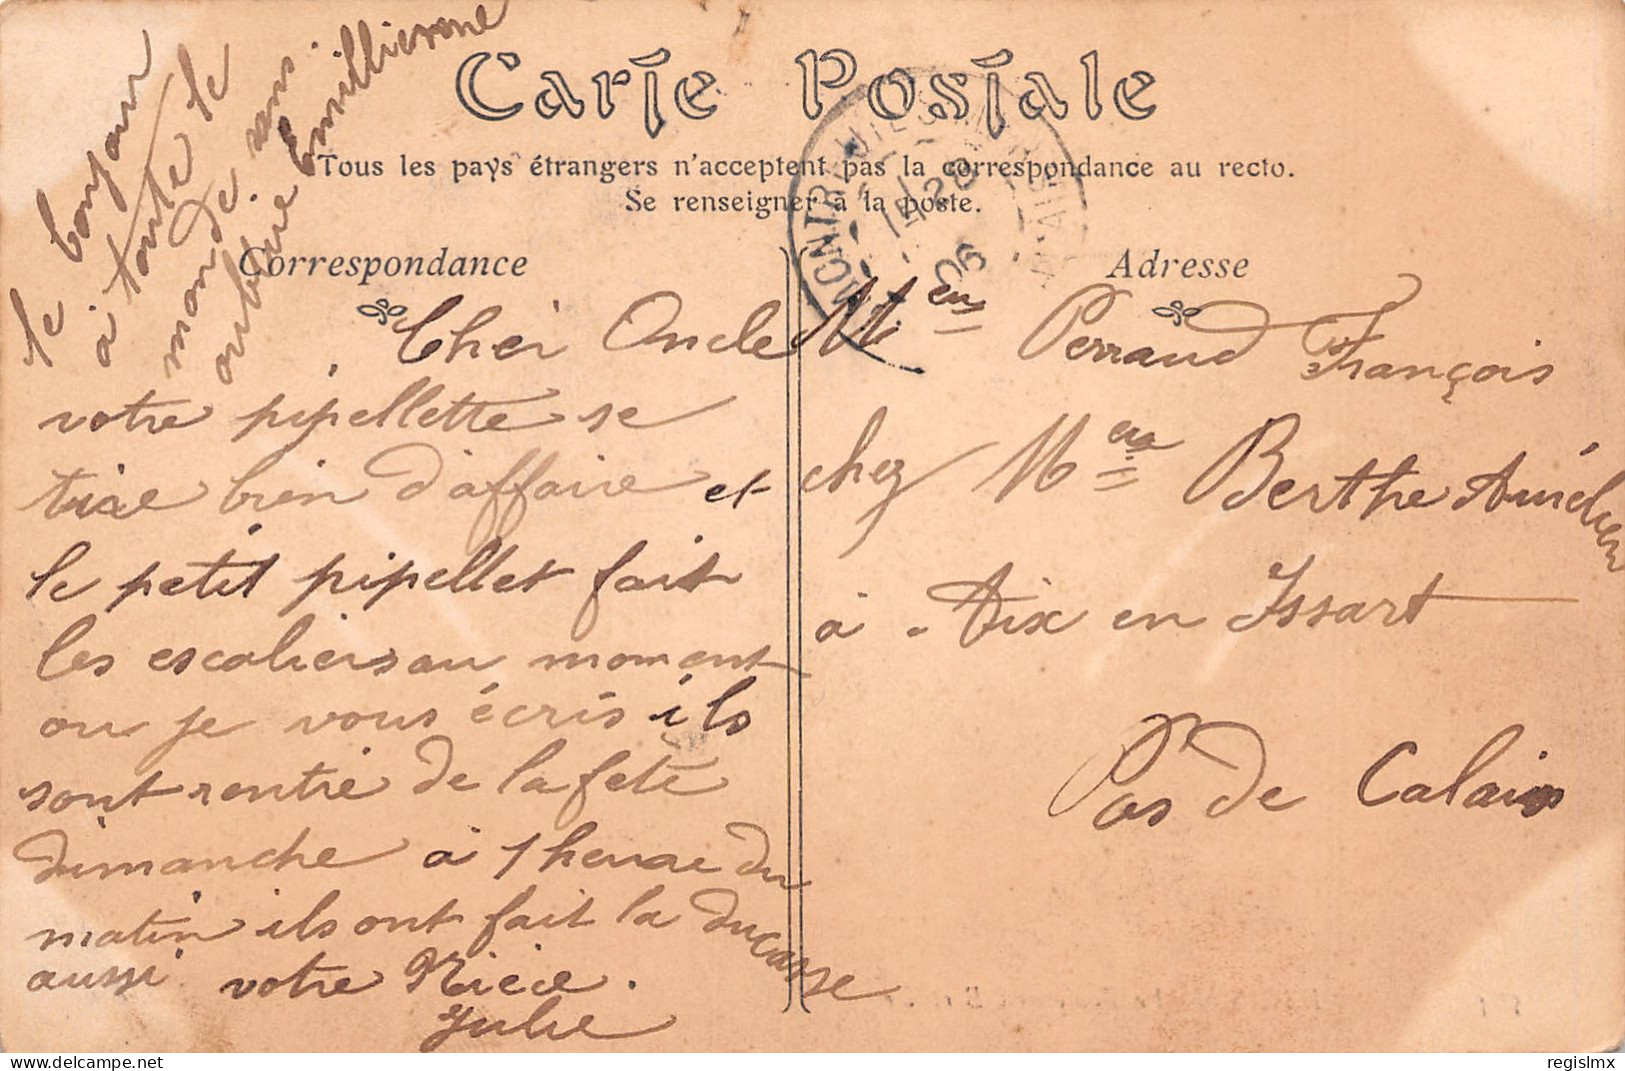 le bonjour
à toute le
monde. sans.
oublier Emillienne
Carte Postale
Tous les pays étrangers n'acceptent pas la correspondance au recto.
Se renseigner à la poste.
Correspondance
Cher Oncle
votre pipellette se
tire bien d'affaire et
le petit pipellet fait
les escaliers au moment
ou je vous écris ils
sont rentré de la fete
dimanche à 1 heure du
matin ils ont fait la ducasse
aussi votre Nièce.
Julie
Adresse
Men Perraud François
chez Men Berthe Amédien
à Aix en Issart
Pas de Calais
MONTREUIL
28
06
delcampe.net
regislmx